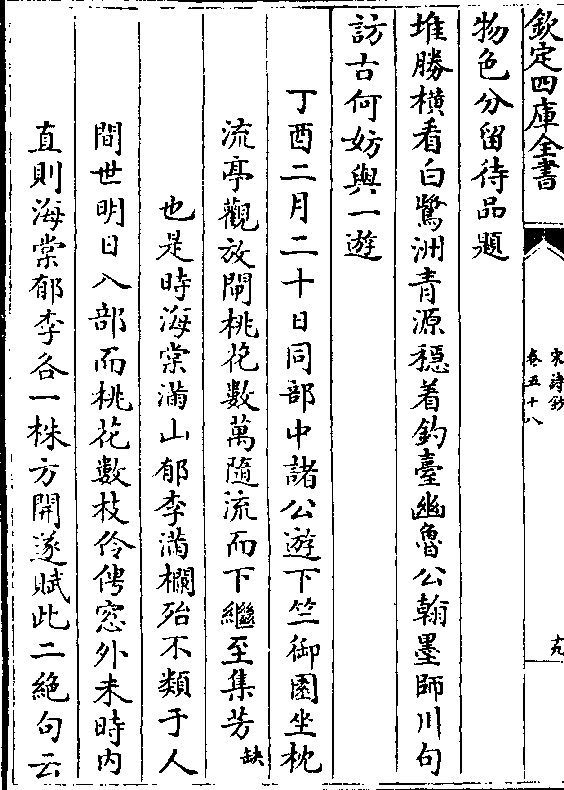 欽定四庫全書
宋詩鈔
卷五十八
十九
物色分留待品題
堆勝橫看白鷺洲青源穩着釣臺幽魯公翰墨師川句
訪古何妨與一遊
丁酉二月二十日同部中諸公遊下竺御園坐枕
流亭觀放閘桃花數萬隨流而下繼至集芳缺
也是時海棠滿山郁李滿欄殆不類于人
間世明日入部而桃花數枝伶俜窓外未時內
直則海棠郁李各一株方開遂賦此二絕句云